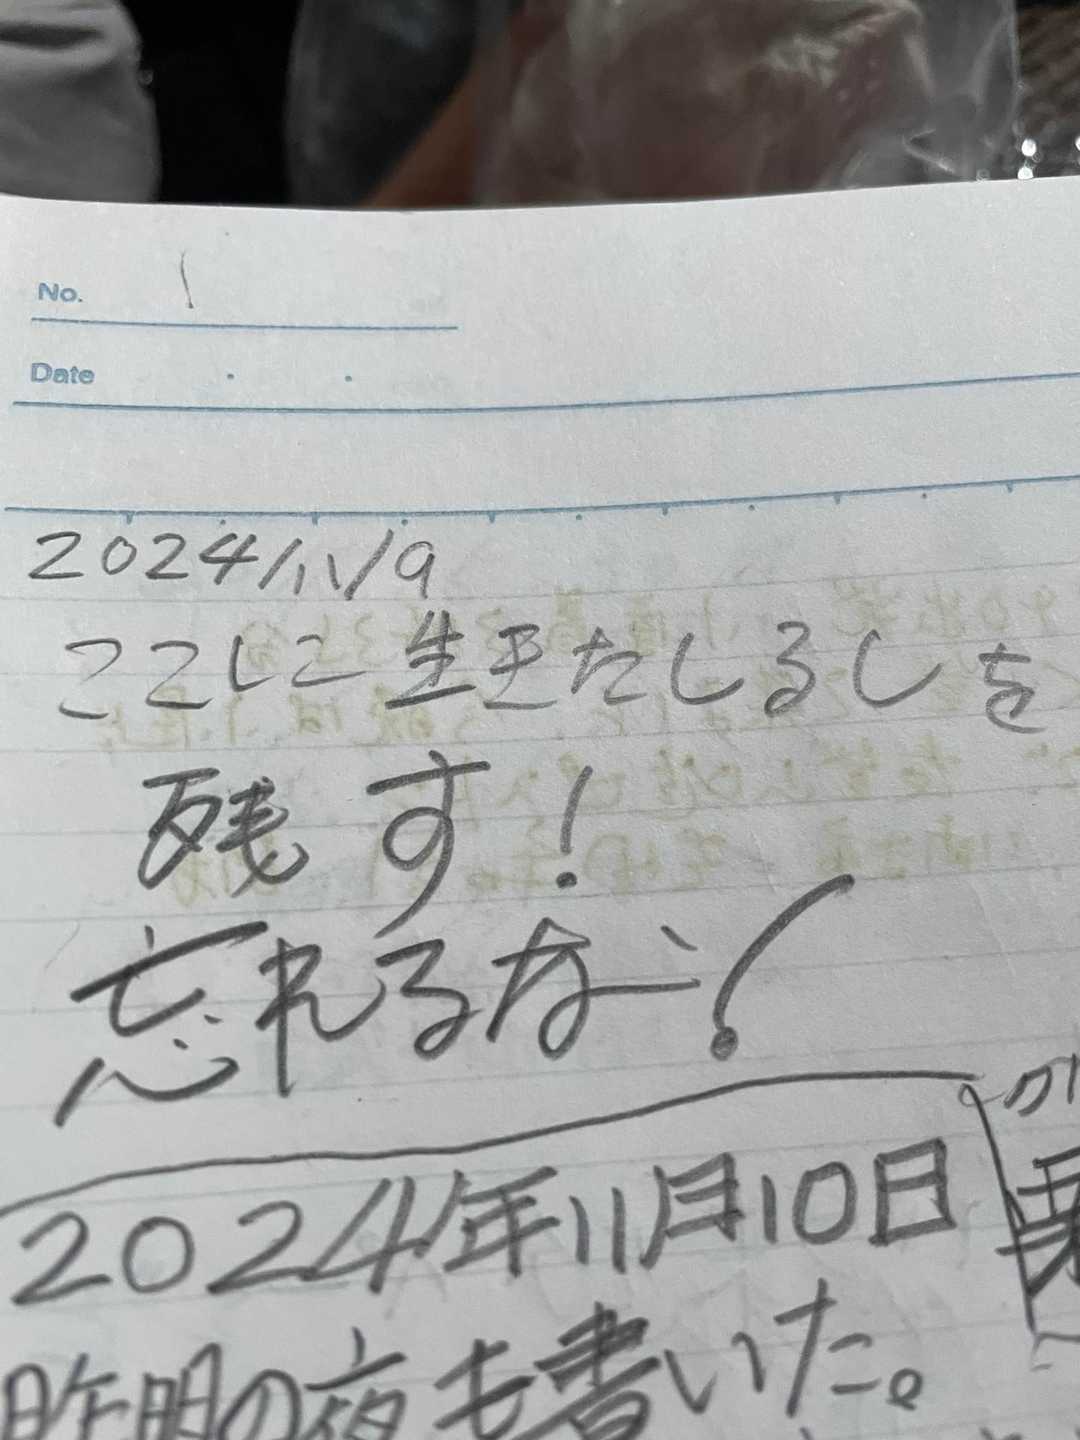 No. 1
Date
2024/11/9
ここに生きたしるしを
残す!
忘れるな!
2024年11月10日
昨明の夜も書いた。